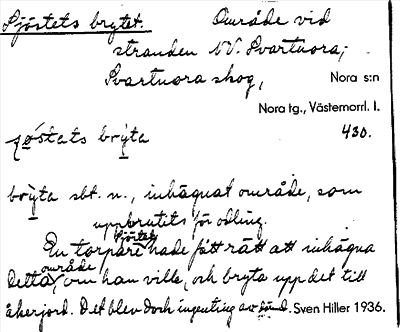 Sjöstets brytet. Område vid
stranden NV. Svartnora,
Svartnora skog, Nora s:n
Nora tg., Västernorrl. l.
430.
bryta
bryta sbt. n., inhägnat område, som
uppbrutits för odling.
En torpare Sjöstet hade fått rätt att inhägna
detta område, om han ville, och bryta upp det till
åkerjord. Det blev doch ingenting av Sven Hiller 1936.